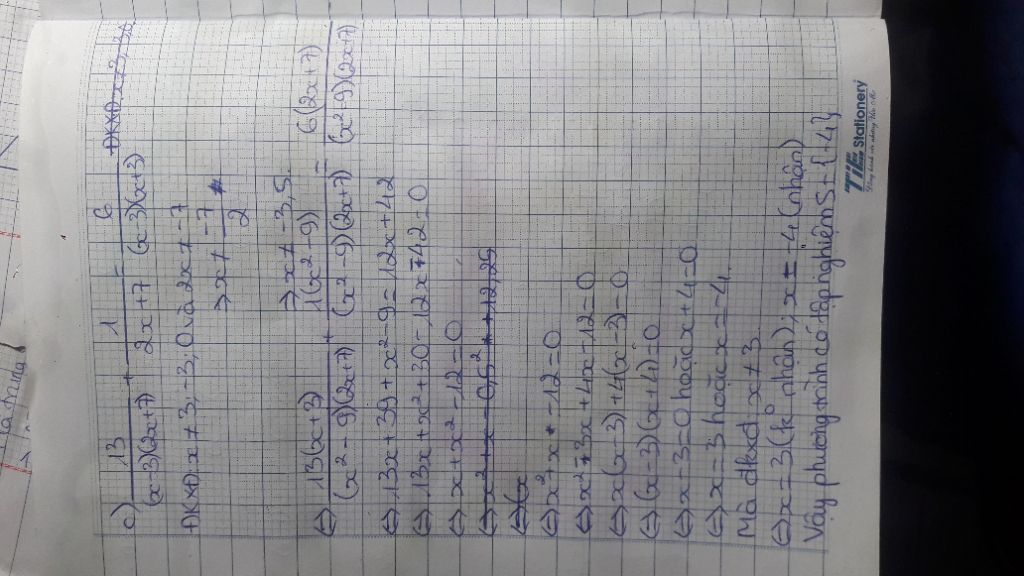 c) 13/(x-3)(2x+7) + 1/2x+7 = 6/(x-3)(x+3)
ĐKXĐ: x ≠ 3; -3; 0 và 2x ≠ -7
=> x ≠ -7/2
=> x ≠ -3,5
<=> 13(x+3)/(x²-9)(2x+7) + 1(x²-9)/(x²-9)(2x+7) = 6(2x+7)/(x²-9)(2x+7)
<=> 13x+39+x²-9=12x+42
<=> 13x+x²+30-12x-42=0
<=> x+x²-12=0
<=> x²+x-0,5²+12,25
<=> (x
<=> x²+x-12=0
<=> x²-3x+4x-12=0
<=> x(x-3)+4(x-3)=0
<=> (x-3)(x+4)=0
<=> x-3=0 hoặc x+4=0
<=> x=3 hoặc x=-4
Mà đkxđ x≠3
<=> x=3 (kº nhận); x=-4 (nhận)
Vậy phương trình có tập nghiệm S={-4}
TiE Stationery